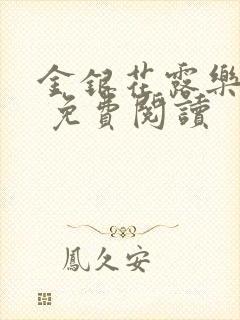 金銀花露樂
免費閱讀
鳳久安